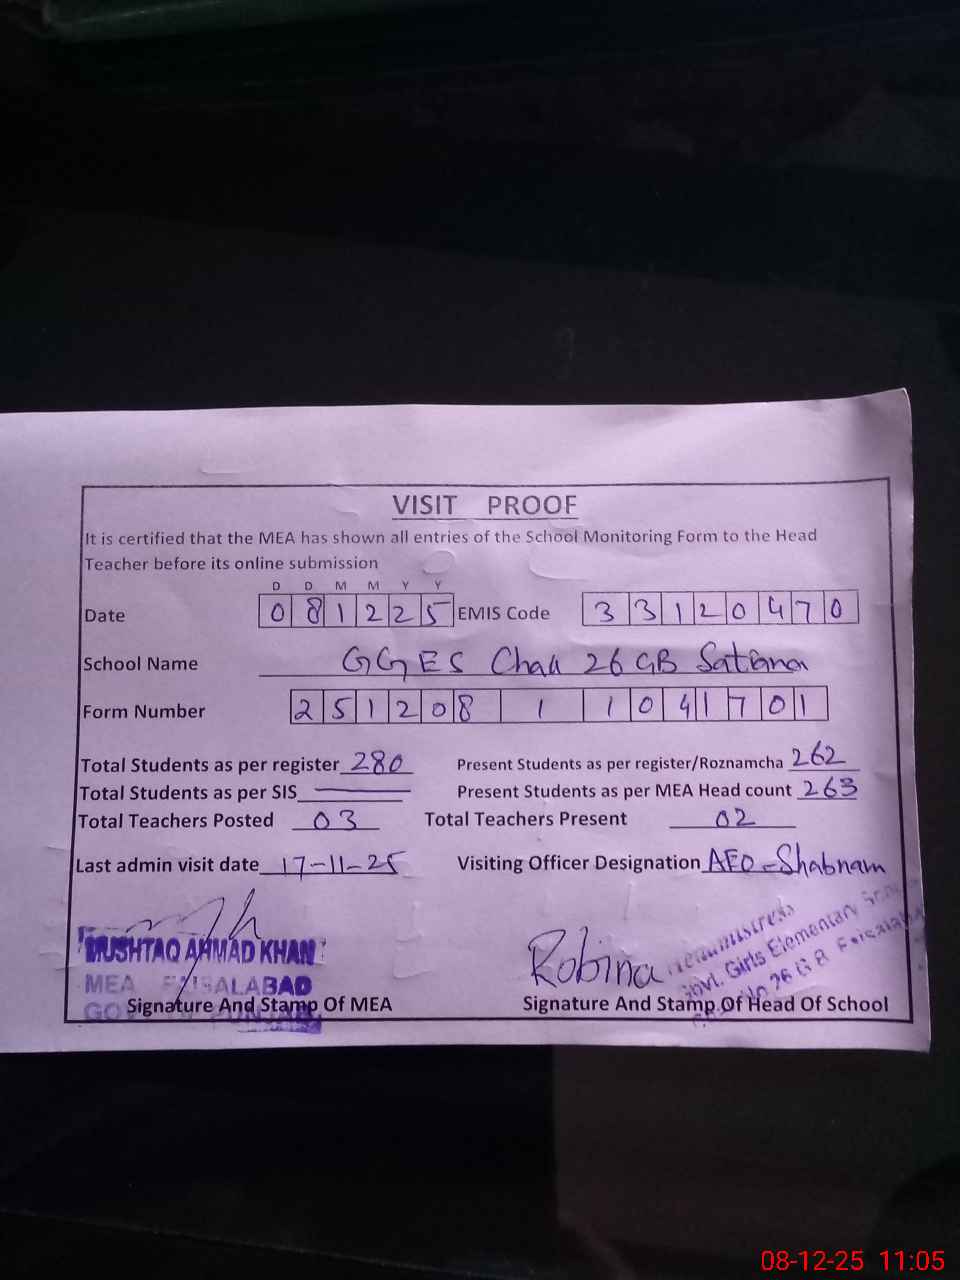 VISIT PROOF
It is certified that the MEA has shown all entries of the School Monitoring Form to the Head
Teacher before its online submission
D D M M Y Y
Date 0 8 1 2 2 5 EMIS Code 3 3 1 2 0 4 7 0
School Name GGES Chak 26 GB Satiana
Form Number 2 5 1 2 0 8 1 1 0 4 1 7 0 1
Total Students as per register 280 Present Students as per register/Roznamcha 262
Total Students as per SIS Present Students as per MEA Head count 263
Total Teachers Posted 03 Total Teachers Present 02
Last admin visit date 17-11-25 Visiting Officer Designation AEO-Shabnam
MUSHTAQ AHMAD KHAN
MEA FAISALABAD
Robina
Headmistress
Govt. Girls Elementary
26 G B Faisalabad
Signature And Stamp Of MEA Signature And Stamp Of Head Of School
08-12-25 11:05